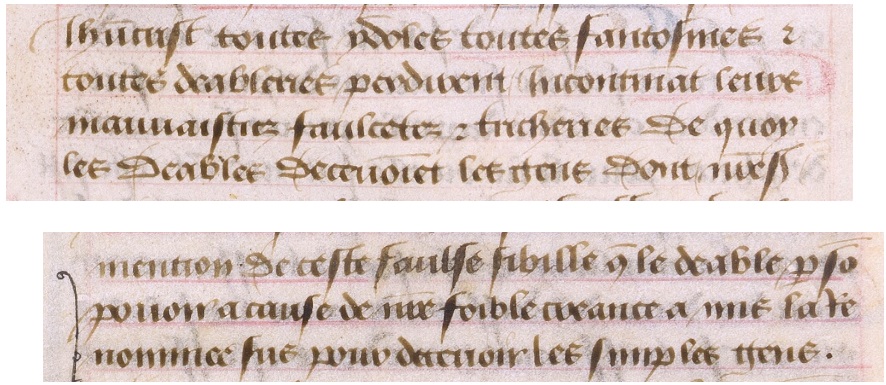 lhūcrist toutes ydoles toutes fantosmes ⁊
toutes deableries perdirent Incontināt leurs
mauuaistiez faulcetez ⁊ tricheries De quoy
les Deables Deceuoiēt les gens Dont nr̄e sʳ
mention De ceste faulse sibille q̄ le deable ꝑ so
pouoir a cause de nr̄e foible creance a mis la re
nommee sus pour deceuoir les simples gens .